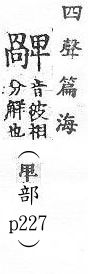 四聲篇海
音彼相
分解也
(甲部
p227)